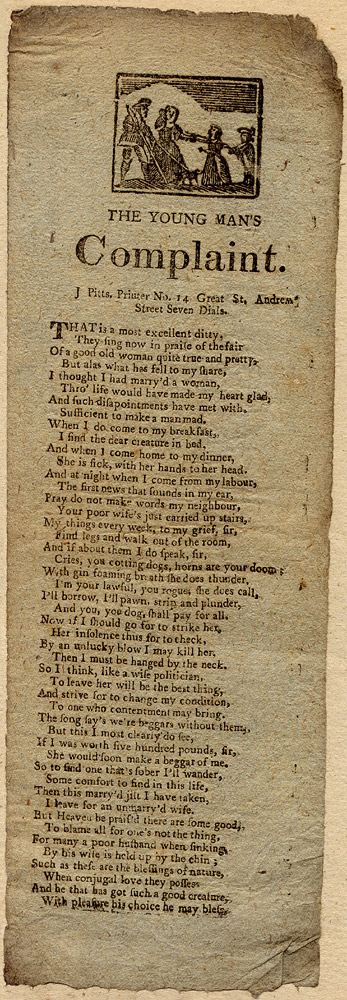 THE YOUNG MAN'S
Complaint.
J Pitts, Printer No. 14 Great St, Andrew's
Street Seven Dials.
THAT is a most excellent ditty,
They sing now in praise of the fair
Of a good old woman quite true and pretty,
But alas what has fell to my share,
I thought I had marry'd a woman,
Thro' life would have made my heart glad,
And such disapointments have met with.
Sufficient to make a man mad.
When I do come to my breakfast,
I find the dear creature in bed.
And when I come home to my dinner,
She is sick, with her hands to her head.
And at night when I come from my labour,
The first news that sounds in my ear,
Pray do not make words my neighbour,
Your poor wife's just carried up stairs,
My things every week, to my grief, sir,
Find legs and walk out of the room,
And if about them I do speak, sir,
Cries, you cotting dogs, horns are your doom;
With gin foaming breath she does thunder,
I'm your lawful, you rogue, she does call,
I'll borrow, I'll pawn, strip and plunder,
And you, you dog, shall pay for all.
Now if I should go for to strike her,
Her insolence thus for to check,
By an unlucky blow I may kill her,
Then I must be hanged by the neck.
So I think, like a wise politician,
To leave her will be the best thing,
And strive for to change my condition,
To one who contentment may bring.
The song say's we're beggars without them,
But this I most clearly do see,
If I was worth five hundred pounds, sir,
She would soon make a beggar of me.
So to find one that's sober I'll wander,
Some comfort to find in this life,
Then this marry'd jilt I have taken,
I leave for an unmarry'd wife.
But Heaven be prais'd there are some good,
To blame all for one's not the thing,
For many a poor husband when sinking,
By his wife is held up by the chin;
Such as these are the blessings of nature,
When conjugal love they possess
And he that has got such a good creature,
With pleasure his choice he may bless,